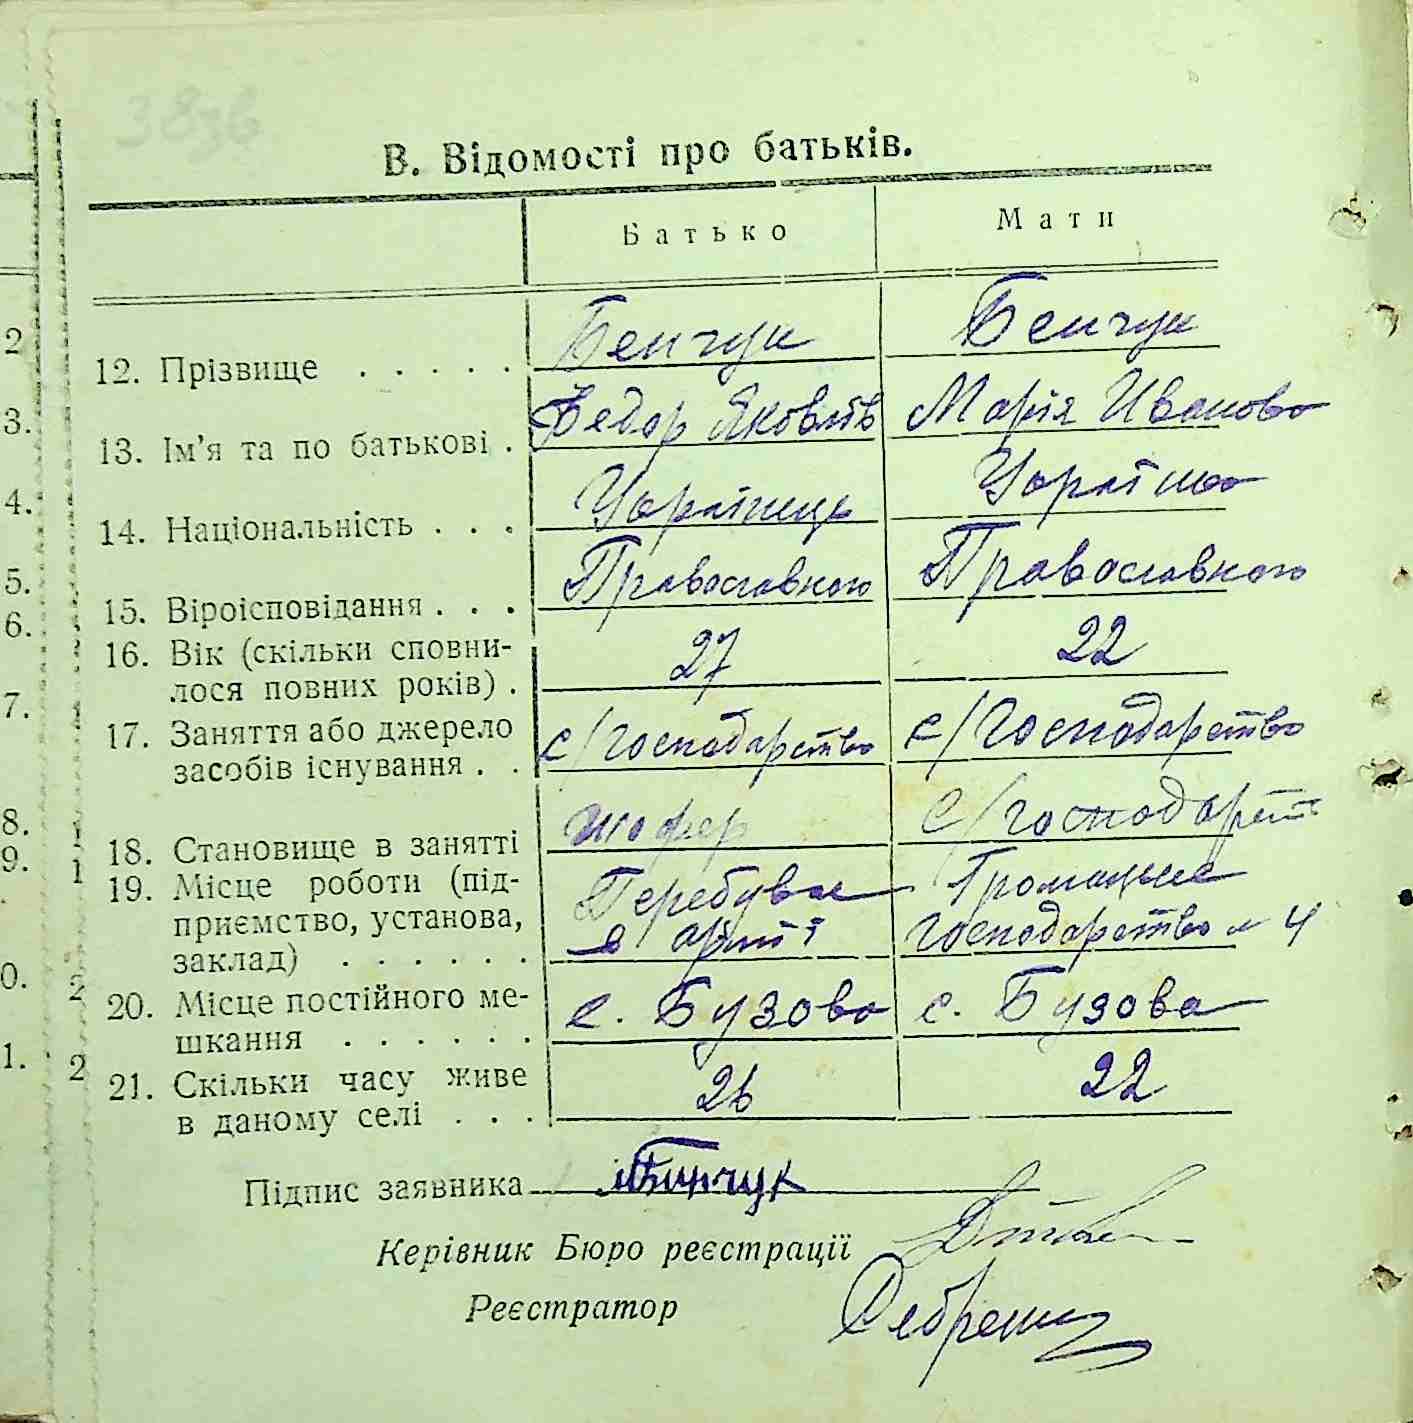 383в
В. Відомості про батьків.
Батько Мати
12. Прізвище . . . . . Бенчук Бенчук
13. Ім'я та по батькові . Федор Яковлів Марія Иваново
14. Національність . . . Українець Україно
15. Віроісповідання . . . Православного Православного
16. Вік (скільки сповни-
лося повних років) . 27 22
17. Заняття або джерело
засобів існування . . с/господарство с/господарство
18. Становище в занятті шофер с/господарст
19. Місце роботи (під- Перебувае Громадське
приємство, установа, в армії господарство № 4
заклад) . . . . . .
20. Місце постійного ме- с. Бузова с. Бузова
шкання . . . . . .
21. Скільки часу живе 26 22
в даному селі . . .
Підпис заявника Бинчук
Керівник Бюро реєстрації
Реєстратор